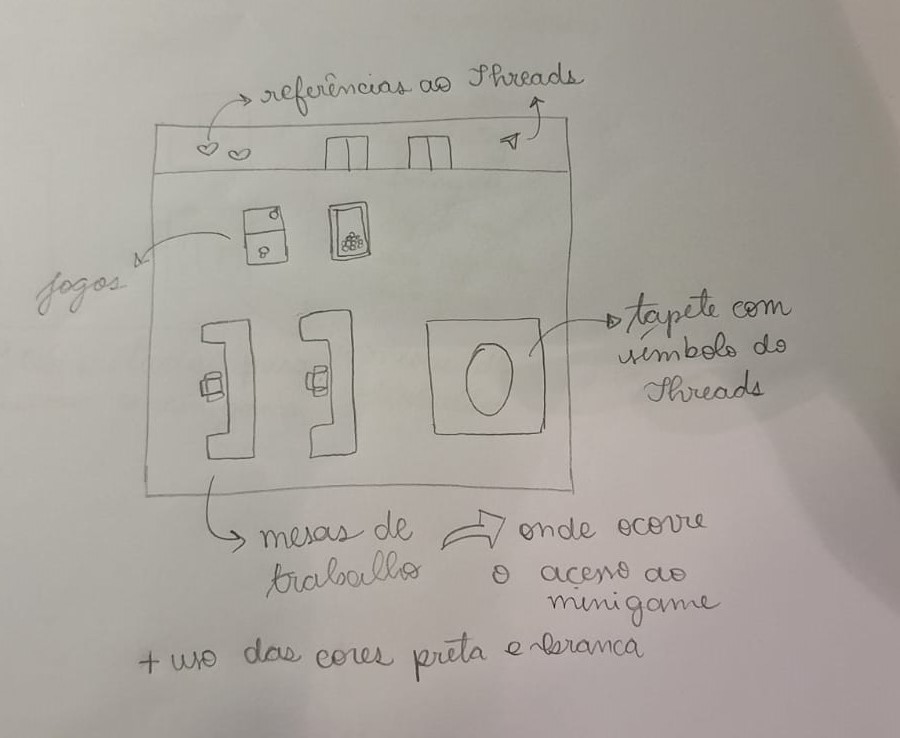 referências ao Threads
jogos
tapete com
símbolo do
Threads
mesas de
trabalho
onde ocorre
o aceno ao
minigame
+ uso das cores preta e branca